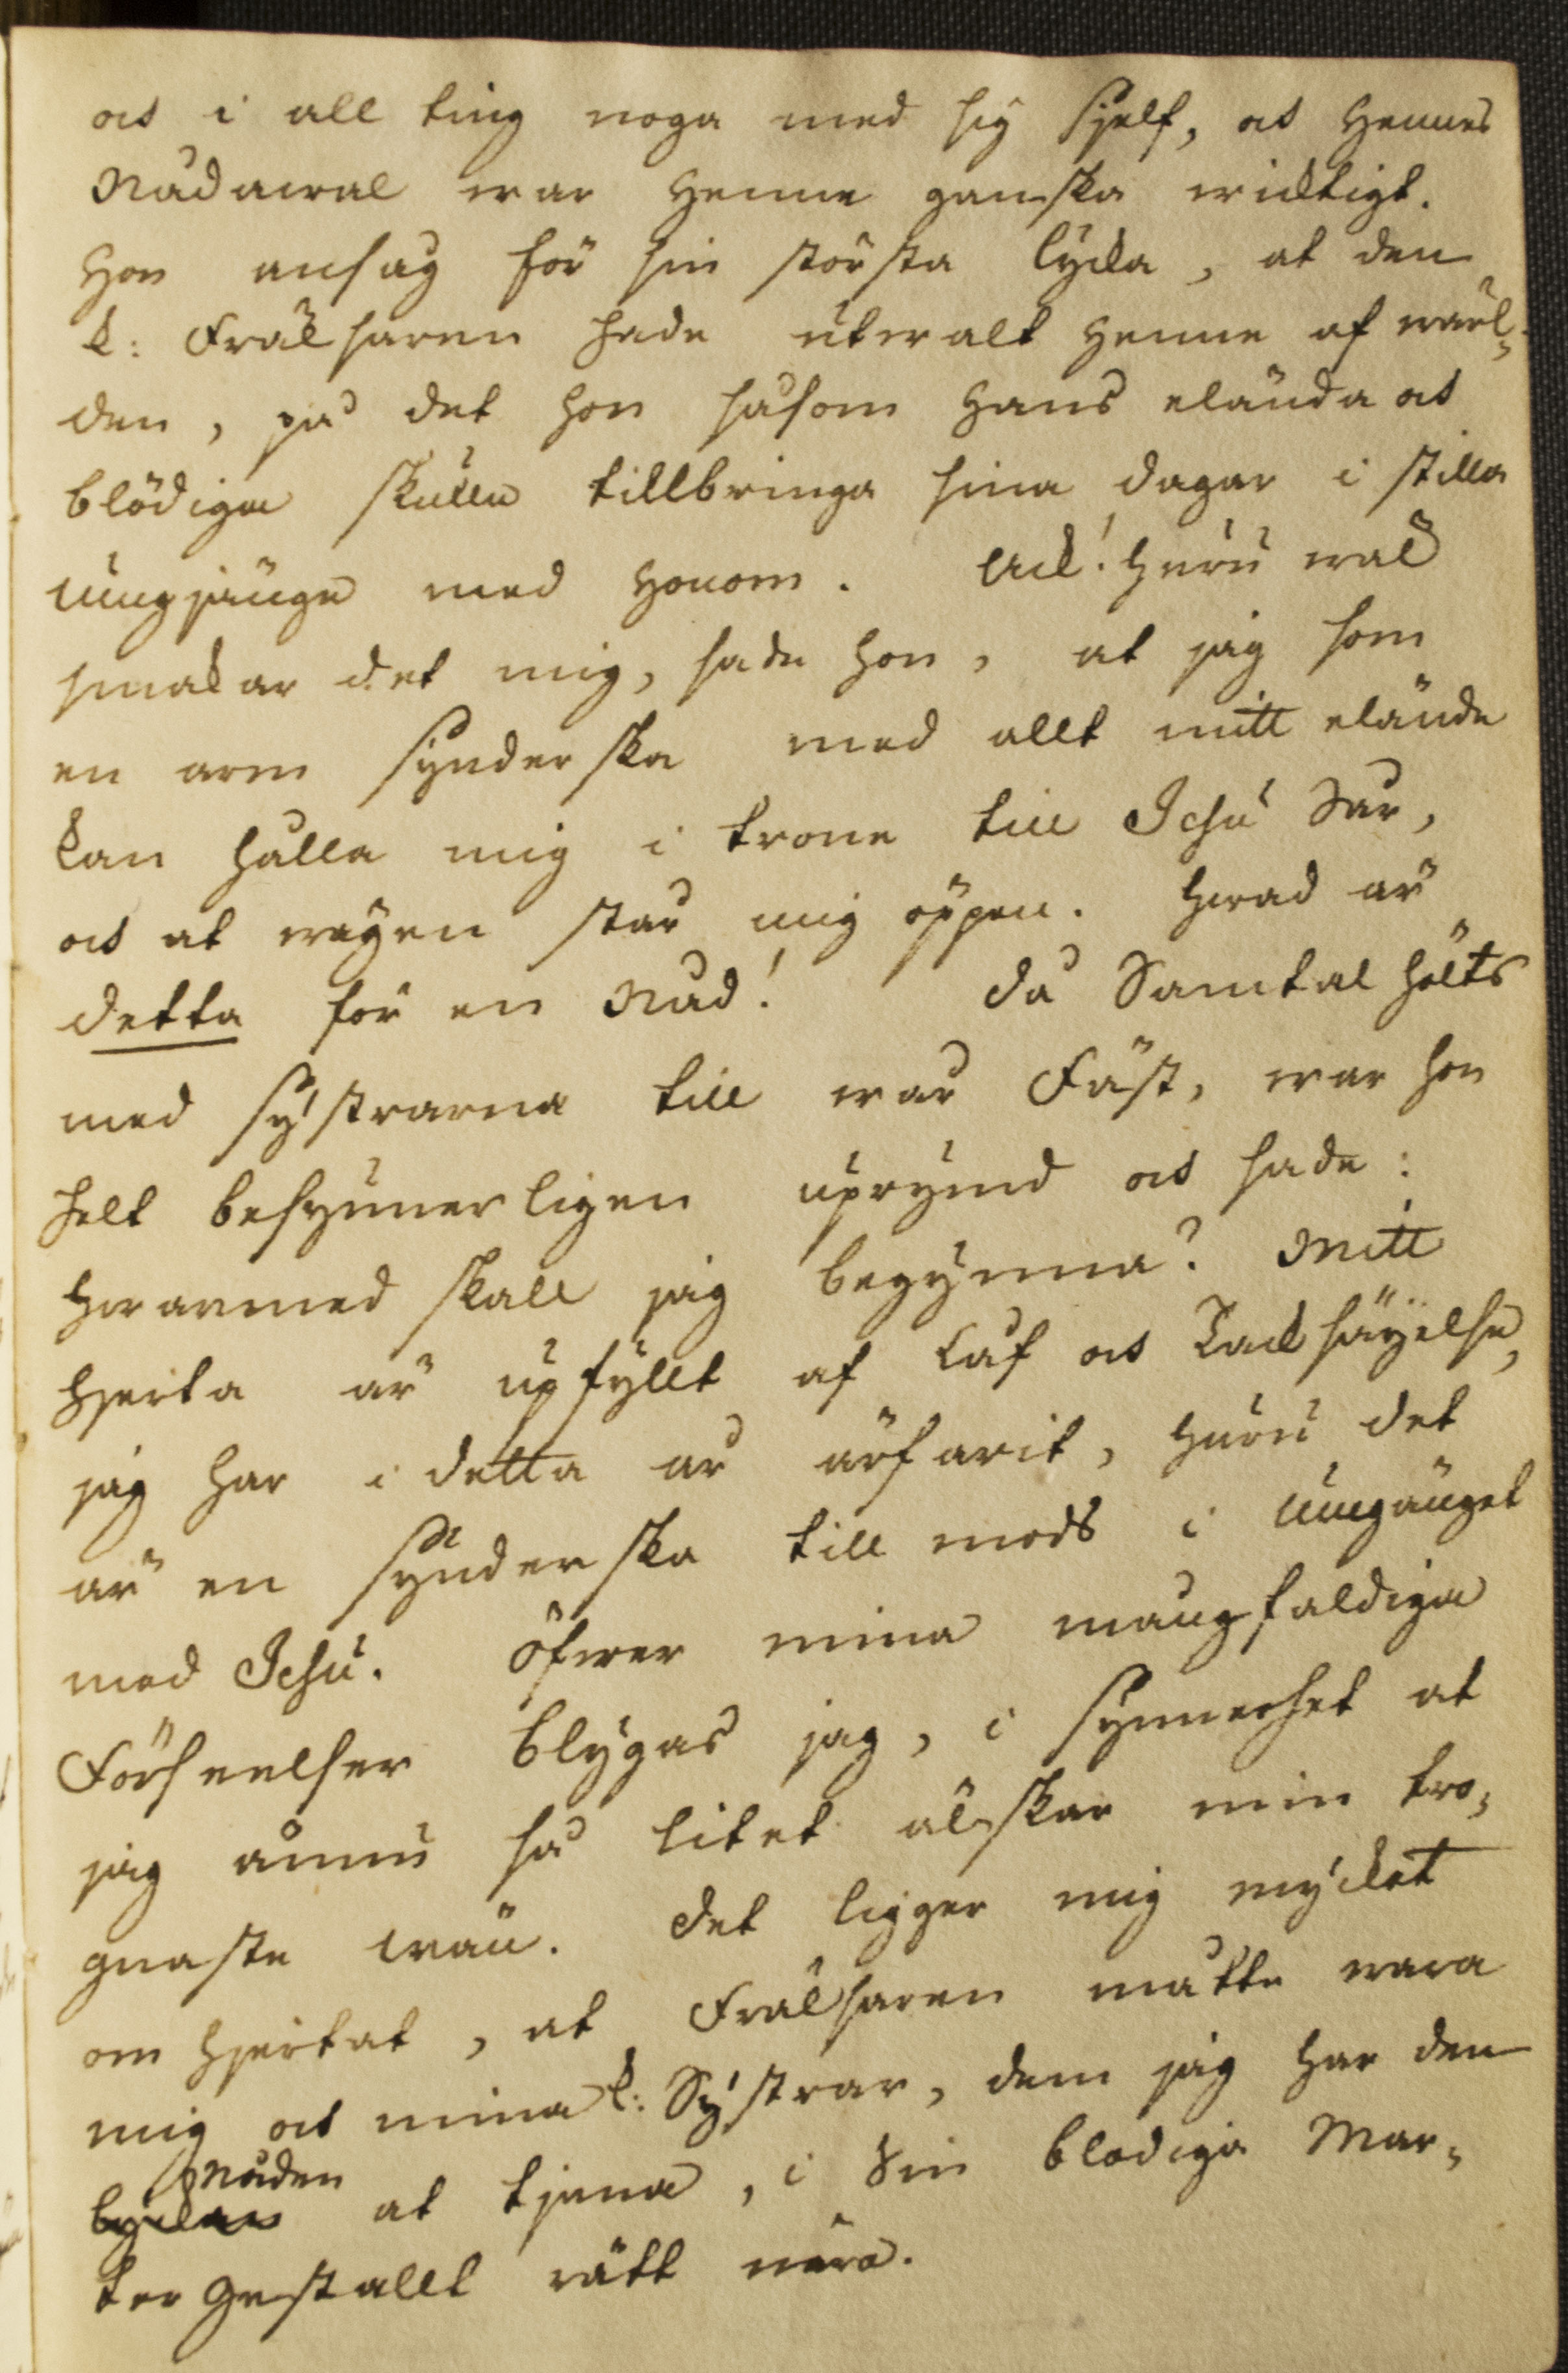 och i all ting noga med sig sjelf, och Hennes
Nådawal war Henne ganska wicktigt.
Hon ansåg för sin största lycka, at den
k: Frälsaren hade utwalt Henne af werl,
den, på det hon såsom Hans elända och
blödiga skulle tillbringa sina dagar i stilla
Umgjänge med Honom. Ack! Huru wäl
smakar det mig, sade hon, at jag som
en arm Synderska med allt mitt elände
kan hålla mig i trone till Jesu Sår,
och at wägen står mig öppen. Hwad är
detta för en Nåd! Då Samtal hölts
med Systrarna till wår Fäst, war hon
helt besynnerligen uprymd och sade:
Hwarmed skall jag begynna? Mitt
Hjerta är upfyllt af Låf och Tacksäyelse,
jag har i detta år ärfarit, Huru det
är en Synderska till mods i Umgänget
med Jesu. Öfwer mina mångfaldiga
Förseelser blygas jag, i synnerhet at
jag ännu så litet älskar min tro,
gnaste wän. Det ligger mig mycket
om Hjertat, at Frälsaren måtte wara
mig och mina k: Systrar, dem jag har den
Nåden
lyckan at tjena, i Sin blodiga Mar,
ter Gestallt rätt nära.